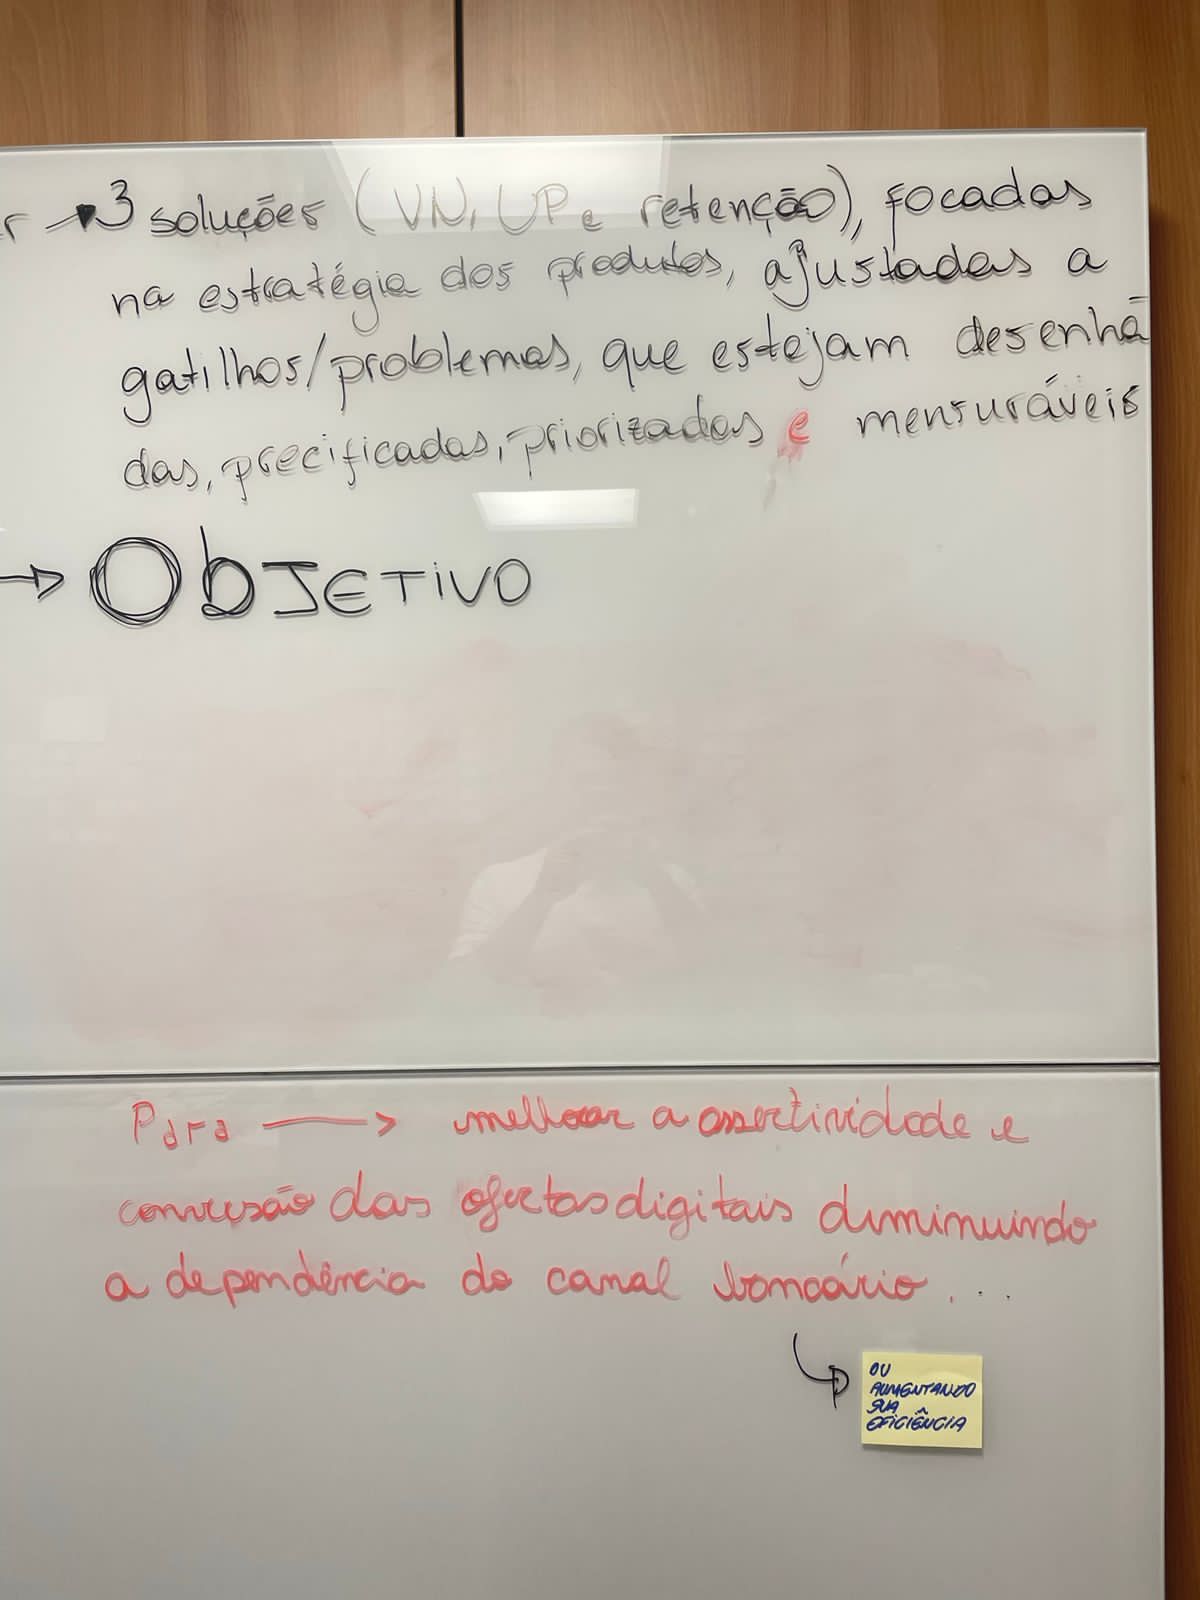 r → 3 soluções (VN, UP e retenção), focadas
na estratégia dos produtos, ajustadas a
gatilhos/problemas, que estejam desenha
das, precificadas, priorizadas e mensuráveis
→ OBJETIVO
Para → melhorar a assertividade e
conversão das ofertas digitais diminuindo
a dependência do canal bancário...
OU
AUMENTANDO
SUA
EFICIÊNCIA